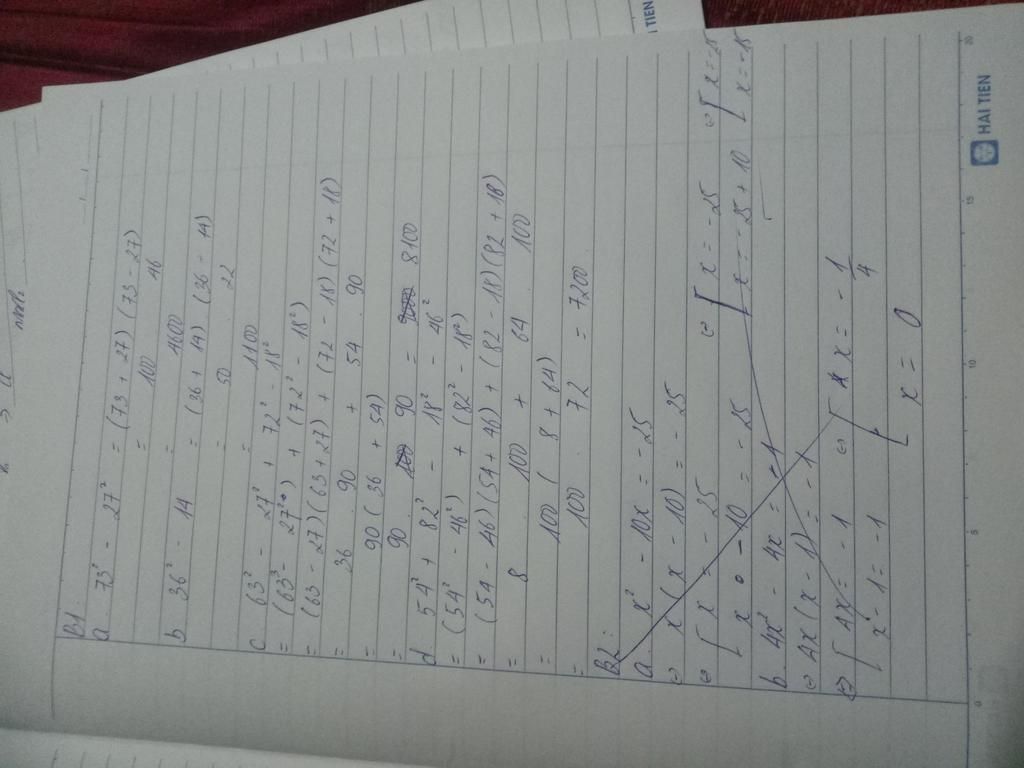 B1
a 73² - 27² = (73 + 27) (73 - 27)
= 100 46
= 4600
b 36² - 14 = (36 + 14) (36 - 14)
= 50 . 22
= 1100
c 63² - 27² + 72² - 18²
= (63² - 27²) + (72² - 18²)
= (63 - 27) (63 + 27) + (72 - 18) (72 + 18)
= 36 90 + 54 . 90
= 90 (36 + 54)
= 90 . 90 = 8100
d 54² + 82² - 18² - 46²
= (54² - 46²) + (82² - 18²)
= (54 - 46) (54 + 46) + (82 - 18) (82 + 18)
= 8 100 + 64 100
= 100 ( 8 + 64)
= 100 72 = 7200
B2:
a. x² - 10x = - 25
⇔ x (x - 10) = - 25
⇔ [ x = - 25 ⇔ [ x = - 25 ⇔ [ x = -25
[ x - 10 = - 25 [ x = - 25 + 10 [ x = -15
b. 4x² - 4x = - 1
⇔ 4x (x - 1) = - 1
⇔ [ 4x = - 1 ⇔ [ x = - 1/4
[ x - 1 = - 1 [ x = 0
HAI TIEN
0 5 10 15 20
TIEN